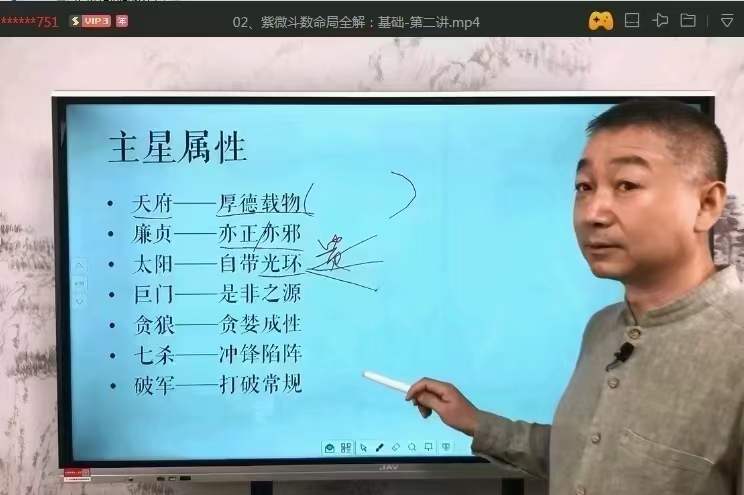 ******751 VIP3 年 02、紫微斗数命局全解：基础-第二讲.mp4
主星属性
• 天府——厚德载物( )
• 廉贞——亦正亦邪
• 太阳——自带光环 贵
• 巨门——是非之源
• 贪狼——贪婪成性
• 七杀——冲锋陷阵
• 破军——打破常规
JAV